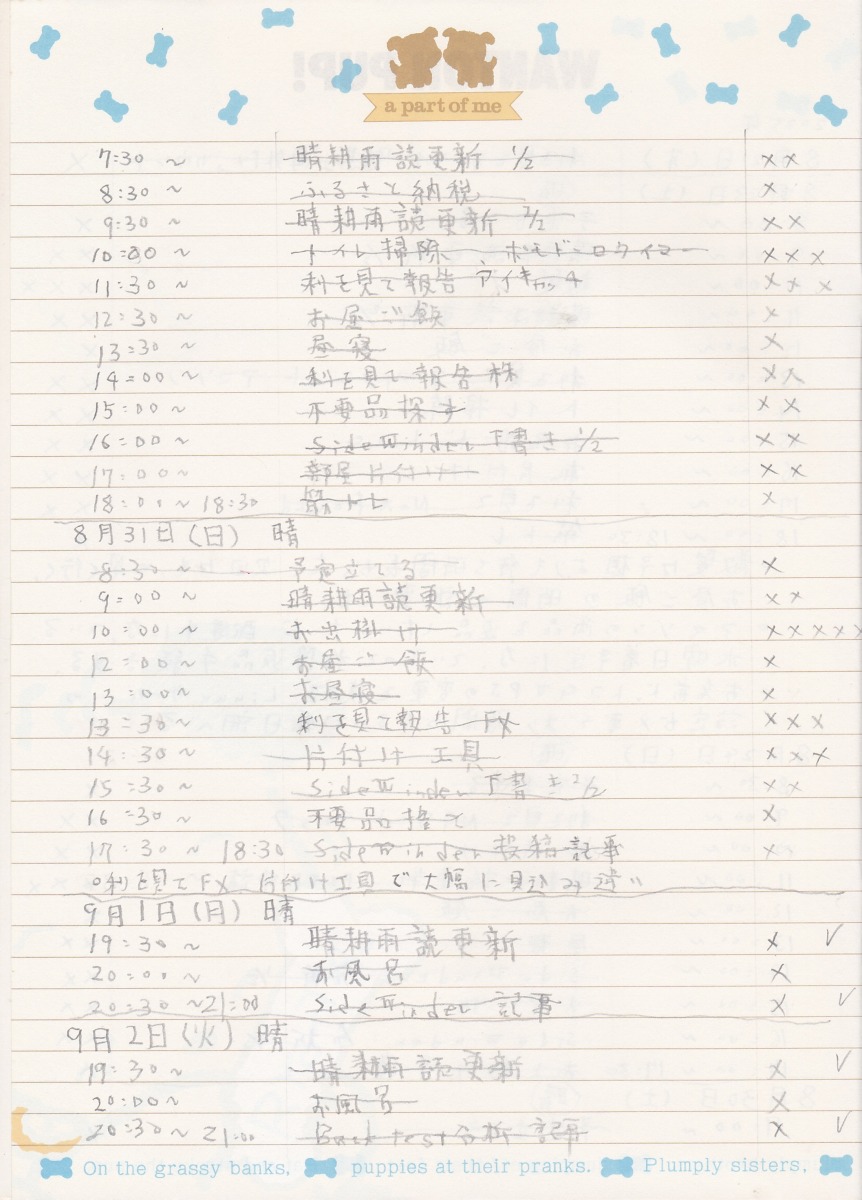 a part of me
7:30 ~ 晴耕雨読更新 1/2 ××
8:30 ~ ふるさと納税 ×
9:30 ~ 晴耕雨読更新 2/2 ××
10:00 ~ トイレ掃除、ポモドーロタイマー ×××
11:30 ~ 利を見て報告 アイキャッチ ×××
12:30 ~ お昼ご飯 ×
13:30 ~ 昼寝 ×
14:00 ~ 利を見て報告 株 ××
15:00 ~ 不要品探す ××
16:00 ~ SideWinder 下書き 1/2 ××
17:00 ~ 部屋片付け ××
18:00 ~ 18:30 筋トレ ×
8月31日(日) 晴
8:30 ~ 予定立てる ×
9:00 ~ 晴耕雨読更新 ××
10:00 ~ お出掛け ×××××
12:00 ~ お昼ご飯 ×
13:00 ~ お昼寝 ×
13:30 ~ 利を見て報告 FX ×××
14:30 ~ 片付け 工具 ×××
15:30 ~ SideWinder 下書き 2/2 ××
16:30 ~ 不要品捨て ×
17:30 ~ 18:30 SideWinder 投稿 記事 ××
○利を見てFX、片付け工具で大幅に見込み違い
9月1日(月) 晴
19:30 ~ 晴耕雨読更新 × ✓
20:00 ~ お風呂 ×
20:30 ~ 21:00 SideWinder 記事 × ✓
9月2日(火) 晴
19:30 ~ 晴耕雨読更新 × ✓
20:00 ~ お風呂 ×
20:30 ~ 21:00 Back test分析 記事 × ✓
On the grassy banks, puppies at their pranks. Plumply sisters,